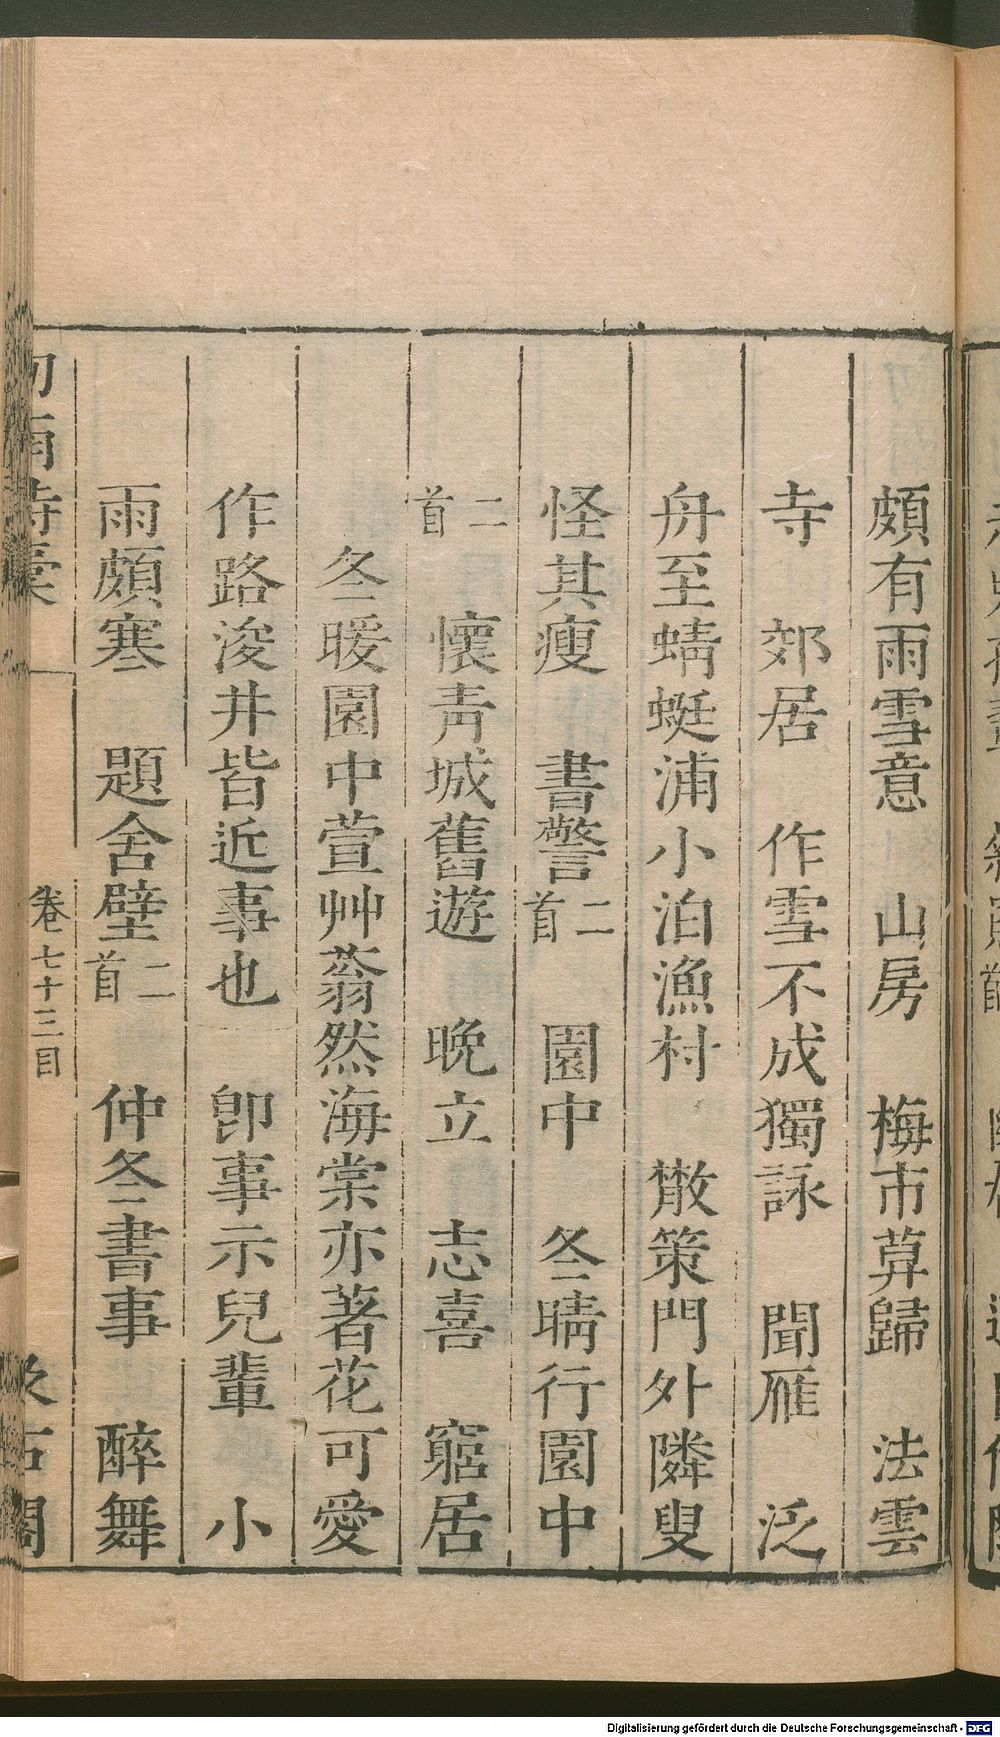 頗有雨雪意　山房　梅市暮歸　法雲
寺　郊居　作雪不成獨詠　聞雁　泛
舟至蜻蜓浦小泊漁村　散策門外隣叟
怪其瘦　書警二首　園中　冬晴行園中
二首　懷靑城舊遊　晚立　志喜　窮居
冬暖園中萱艸蓊然海棠亦著花可愛
作路浚井皆近事也　卽事示兒輩　小
雨頗寒　題舍壁二首　仲冬書事　醉舞
卷七十三目
Digitalisierung gefördert durch die Deutsche Forschungsgemeinschaft - DFG